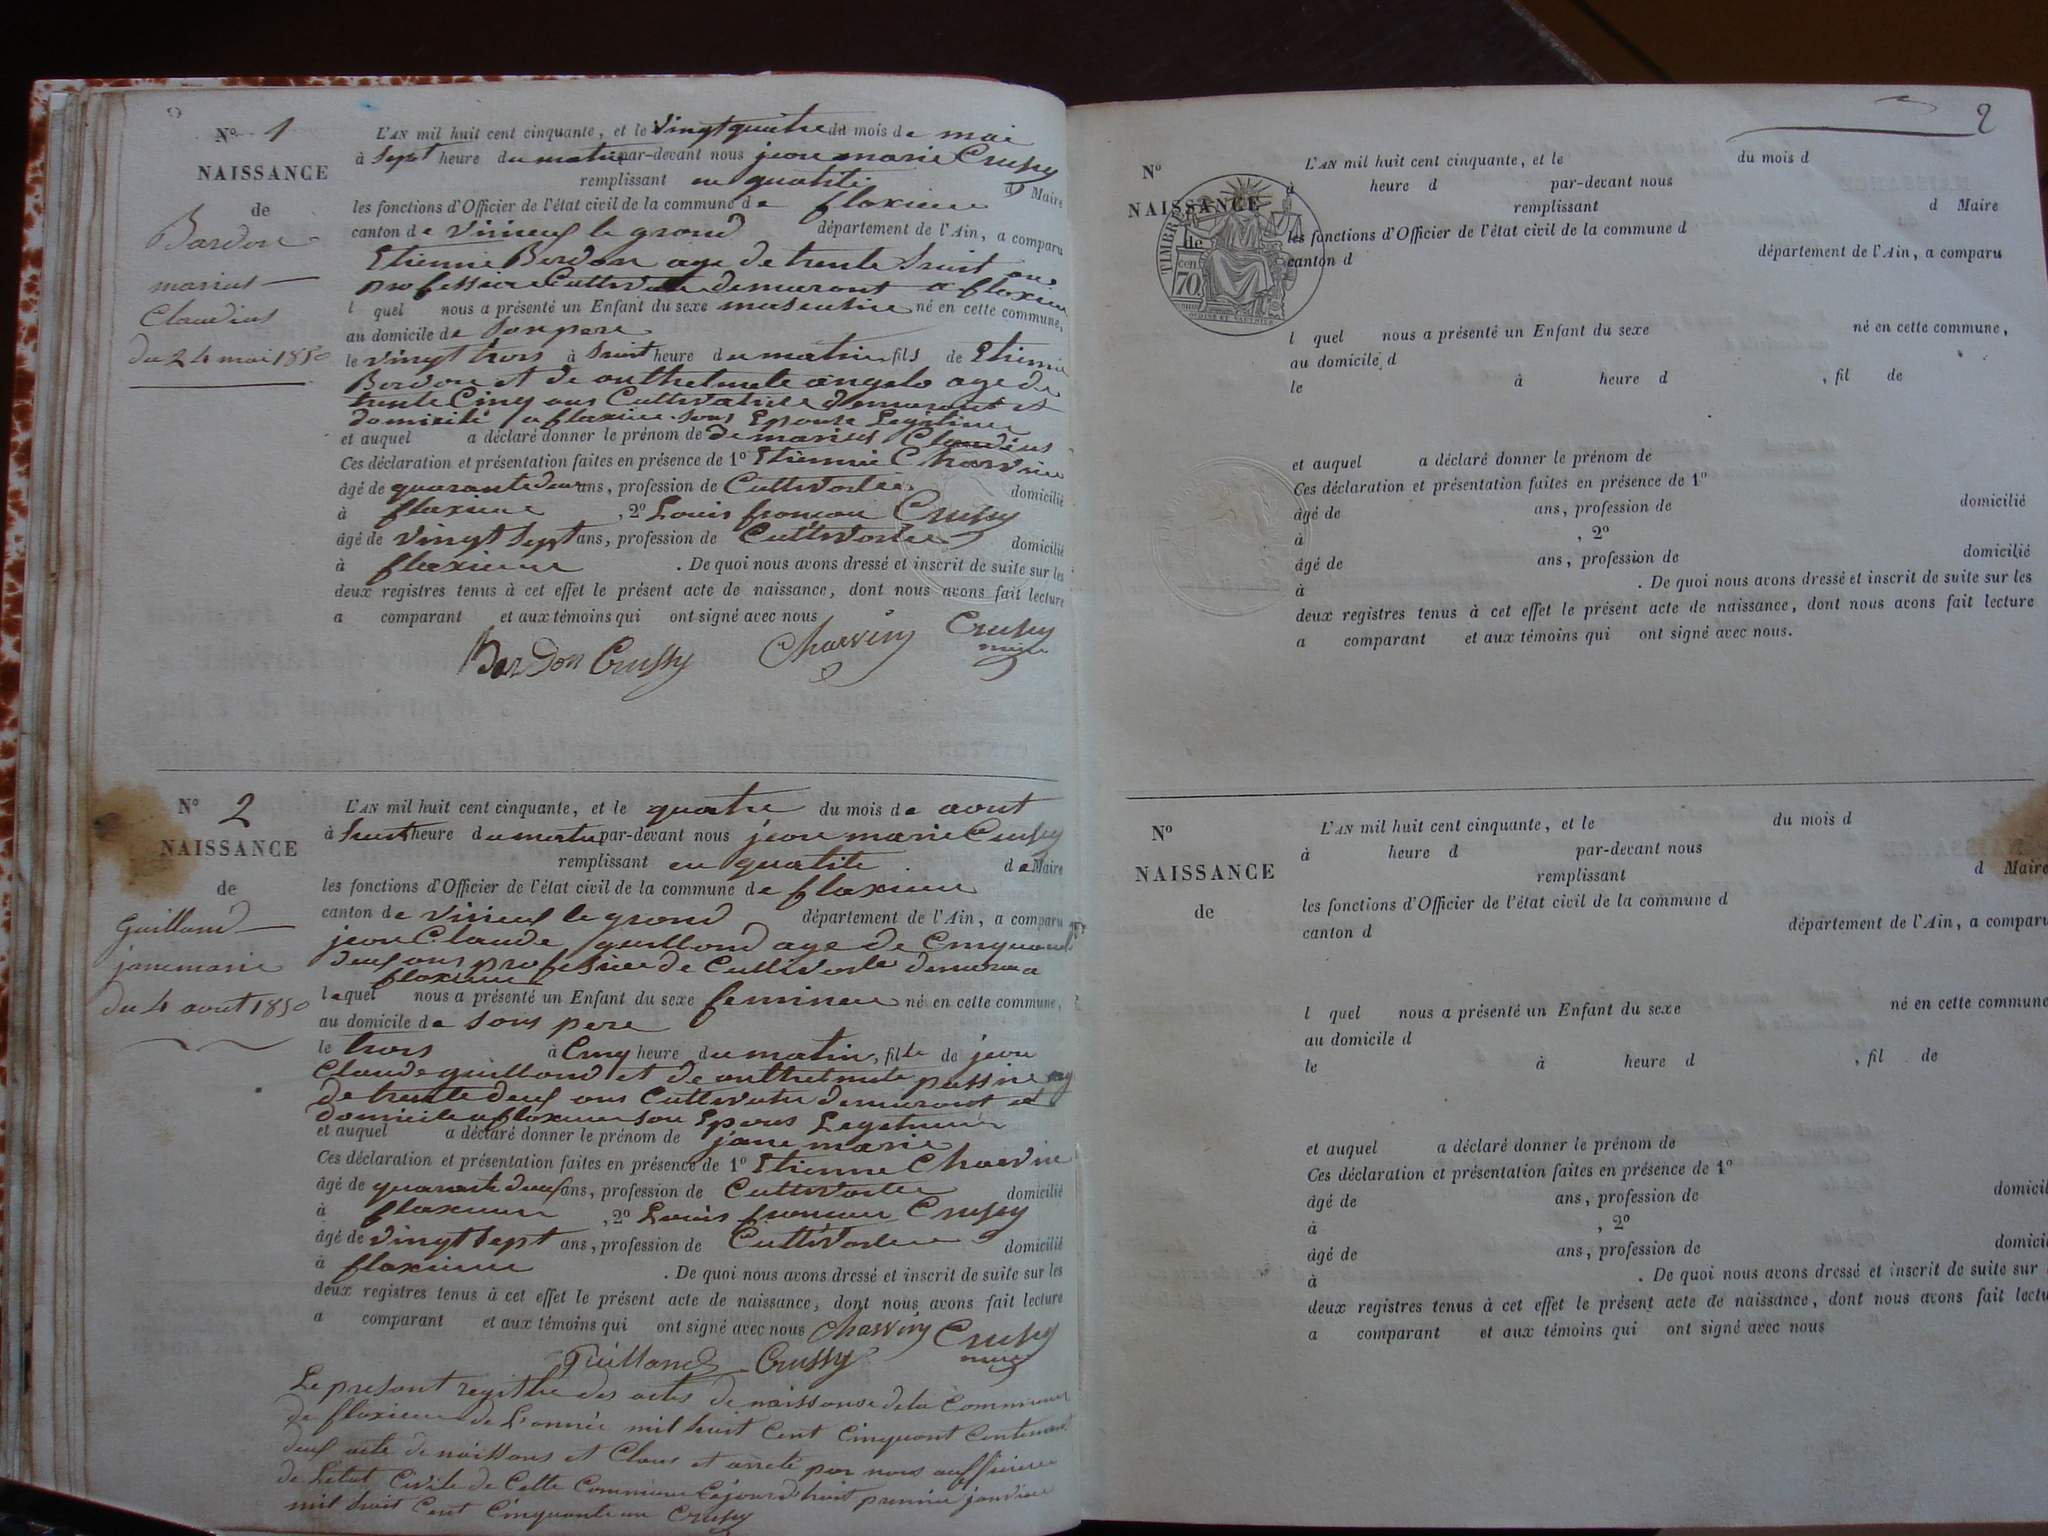 N° 1
NAISSANCE
de
Bardon
marius
Claudius
du 24 mai 1850
L'AN mil huit cent cinquante, et le vingt quatre du mois de mai
à Sept heure du matin par-devant nous jean marie Crussy
remplissant en qualité d Maire
les fonctions d'Officier de l'état civil de la commune de flaxieu
canton de virieu le grand département de l'Ain, a comparu
Etienne Bardon age de trente huit ans
profession Cultivateur demurant a flaxieu
l quel nous a présenté un Enfant du sexe masculin né en cette commune,
au domicile de son pere
le vingt trois à huit heure du matin fils de Etienne
Bardon et de anthelmette angelo age de
trente Cinq ans Cultivatrice demurant et
domicilié a flaxieu sons Epouse Legitime
et auquel a déclaré donner le prénom de de marius Claudius
Ces déclaration et présentation faites en présence de 1° Etienne Charvin
âgé de quarante deux ans, profession de Cultivateur domicilié
à flaxieu , 2° Louis francois Crussy
âgé de vingt Sept ans, profession de Cultivateur domicilié
à flaxieu . De quoi nous avons dressé et inscrit de suite sur les
deux registres tenus à cet effet le présent acte de naissance, dont nous avons fait lecture
a comparant et aux témoins qui ont signé avec nous
Bardon Crussy Charvin Crussy
maire
N° 2
NAISSANCE
de
Guilland
jane marie
du 4 aout 1850
L'AN mil huit cent cinquante, et le quatre du mois de aout
à huit heure du matin par-devant nous jean marie Crussy
remplissant en qualité de Maire
les fonctions d'Officier de l'état civil de la commune de flaxieu
canton de virieu le grand département de l'Ain, a comparu
jean Claude guilland age de Cinquante
deux ans profession de Cultivateur demurant a
flaxieu
lequel nous a présenté un Enfant du sexe feminin né en cette commune,
au domicile de sons pere
le trois à Cinq heure du matin, fille de jean
Claude guilland et de anthelmette passin age
de trente deux ans Cultivatrice demurant et
domicile a flaxieu son Epous Legitime
et auquel a déclaré donner le prénom de jane marie
Ces déclaration et présentation faites en présence de 1° Etienne Charvin
âgé de quarante deux ans, profession de Cultivateur domicilié
à flaxieu , 2° Louis francois Crussy
âgé de vingt Sept ans, profession de Cultivateur domicilié
à flaxieu . De quoi nous avons dressé et inscrit de suite sur les
deux registres tenus à cet effet le présent acte de naissance, dont nous avons fait lecture
a comparant et aux témoins qui ont signé avec nous Charvin Crussy
maire
Guilland Crussy
Le present registre des actes de naissanse de la Commune
de flaxieu de L'année mil huit Cent Cinquant Contenant
deux acte de naissans et Clous et arrete par nous aufficier
de L'etat Civile de Cette Commune Cejourd'huit premier janvier
mil huit Cent Cinquante un Crussy
2
N°
NAISSANCE
de
TIMBRE
70 cen
L'AN mil huit cent cinquante, et le du mois d
à heure d par-devant nous
remplissant d Maire
les fonctions d'Officier de l'état civil de la commune d
canton d département de l'Ain, a comparu
l quel nous a présenté un Enfant du sexe né en cette commune,
au domicile d
le à heure d , fil de
et auquel a déclaré donner le prénom de
Ces déclaration et présentation faites en présence de 1°
âgé de ans, profession de domicilié
à , 2°
âgé de ans, profession de domicilié
à . De quoi nous avons dressé et inscrit de suite sur les
deux registres tenus à cet effet le présent acte de naissance, dont nous avons fait lecture
a comparant et aux témoins qui ont signé avec nous.
N°
NAISSANCE
de
L'AN mil huit cent cinquante, et le du mois d
à heure d par-devant nous
remplissant d Maire
les fonctions d'Officier de l'état civil de la commune d
canton d département de l'Ain, a comparu
l quel nous a présenté un Enfant du sexe né en cette commune
au domicile d
le à heure d , fil de
et auquel a déclaré donner le prénom de
Ces déclaration et présentation faites en présence de 1°
âgé de ans, profession de domicil
à , 2°
âgé de ans, profession de domicil
à . De quoi nous avons dressé et inscrit de suite sur
deux registres tenus à cet effet le présent acte de naissance, dont nous avons fait lectu
a comparant et aux témoins qui ont signé avec nous